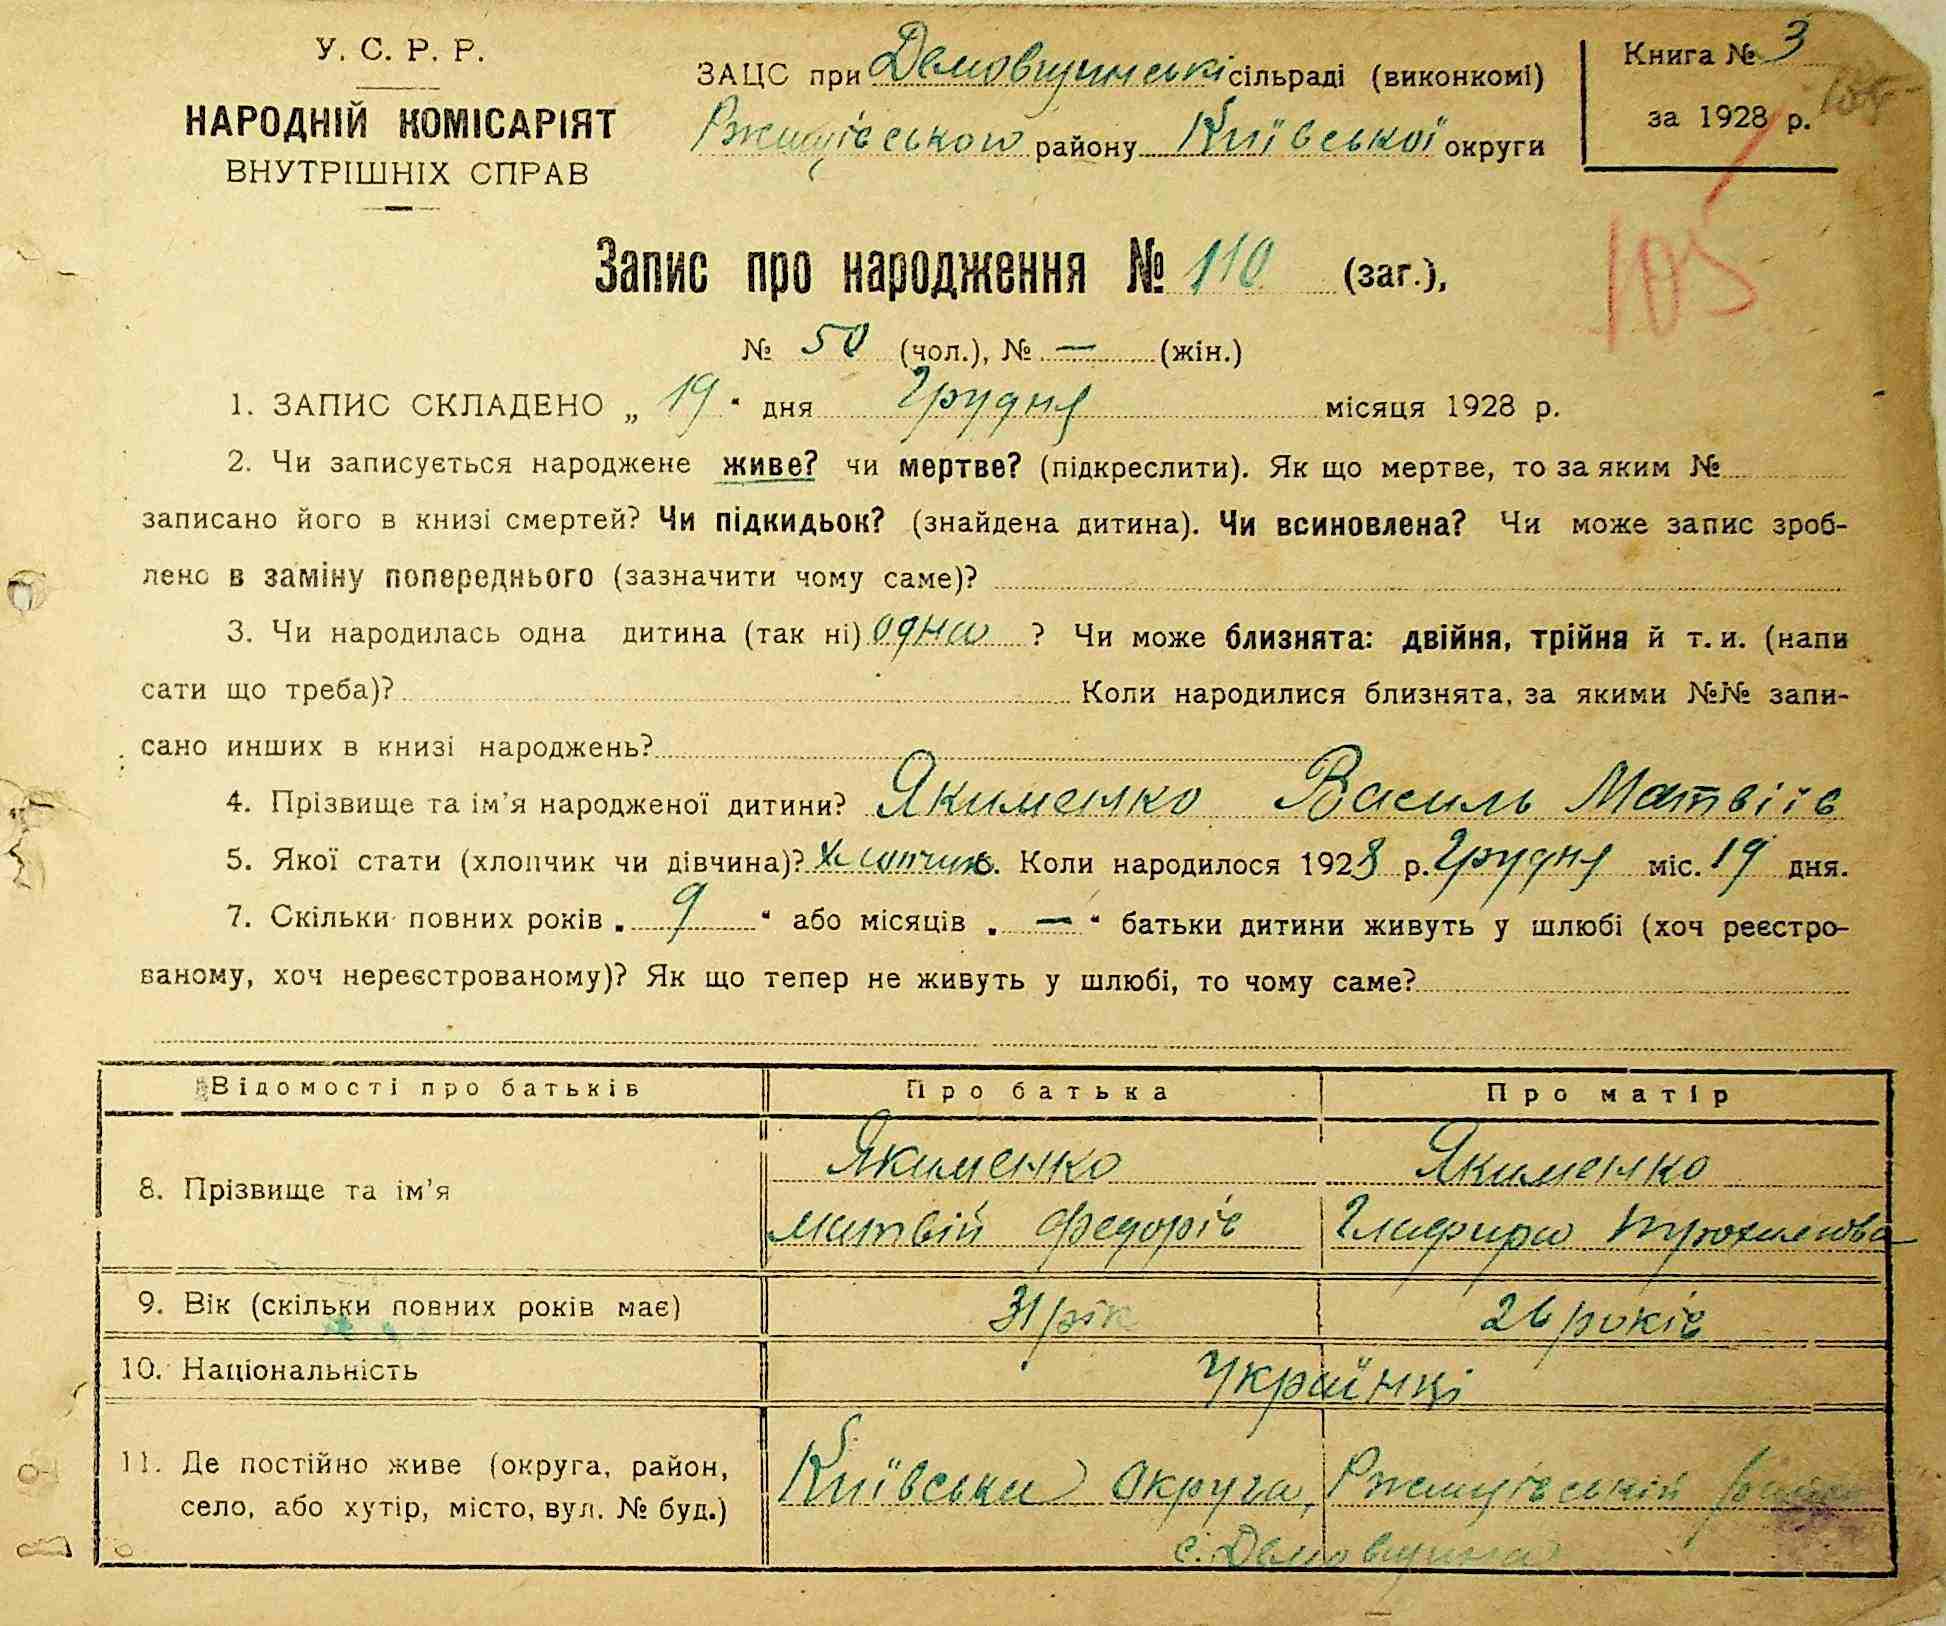 У. С. Р. Р.
НАРОДНІЙ КОМІСАРІЯТ
ВНУТРІШНІХ СПРАВ
ЗАЦС при Демовщинські сільраді (виконкомі)
Ржищівського району Київської округи
Книга № 3
за 1928 р.
105
105
Запис про народження № 110 (заг.),
№ 50 (чол.), № — (жін.)
1. ЗАПИС СКЛАДЕНО „ 19 “ дня Грудня місяця 1928 р.
2. Чи записується народжене живе? чи мертве? (підкреслити). Як що мертве, то за яким №
записано його в книзі смертей? Чи підкидьок? (знайдена дитина). Чи всиновлена? Чи може запис зроб-
лено в заміну попереднього (зазначити чому саме)?
3. Чи народилась одна дитина (так ні) одна ? Чи може близнята: двійня, трійня й т. и. (напи
сати що треба)? Коли народилися близнята, за якими №№ запи-
сано инших в книзі народжень?
4. Прізвище та ім’я народженої дитини? Якименко Василь Матвіїв
5. Якої стати (хлопчик чи дівчина)? Хлопчик. Коли народилося 1928 р. Грудня міс. 19 дня.
7. Скільки повних років „ 9 “ або місяців „ — “ батьки дитини живуть у шлюбі (хоч реєстро-
ваному, хоч нереєстрованому)? Як що тепер не живуть у шлюбі, то чому саме?
Відомості про батьків Про батька Про матір
8. Прізвище та ім’я Якименко Якименко
Матвій Федорів Глафира Трохимова
9. Вік (скільки повних років має) 31 рік 26 років
10. Національність Українці
11. Де постійно живе (округа, район, село, або хутір, місто, вул. № буд.)
Київська округа, Ржищівський район
с. Демовщина